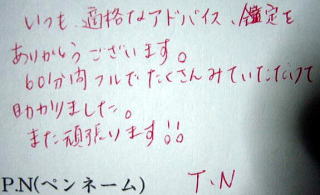 いつも、適格なアドバイス、鑑定を
ありがとうございます。
60分間フルでたくさんみていただけて
助かりました。
また頑張ります!!
P.N(ペンネーム) T.N